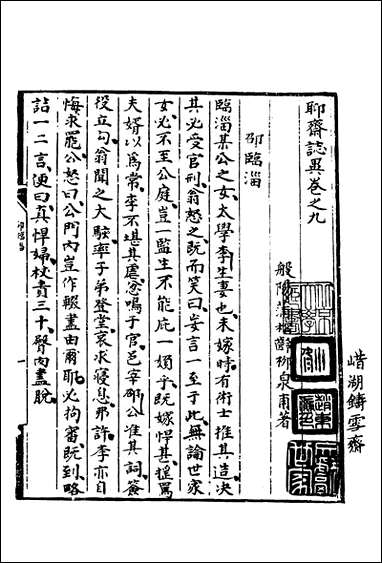 嵖湖鑄雪齋
聊齋誌異卷之九
般陽蒲松齡柳泉甫著
邵臨淄
臨淄某公之女太學李生妻也未嫁時有術士推其造決
其必受官刑翁怒之既而笑曰妄言一至于此無論世家
女必不至公庭豈一監生不能庇一婦乎既嫁悍甚捶罵
夫婿以為常李不堪其虐忿鳴于官邑宰邵公准其詞簽
役立勾翁聞之大駭率子弟登堂哀求寢息弗許李亦自
悔求罷公怒曰公門內豈作輟盡由爾耶必拘審既到略
詰一二言便曰真悍婦杖責三十臀肉盡脫